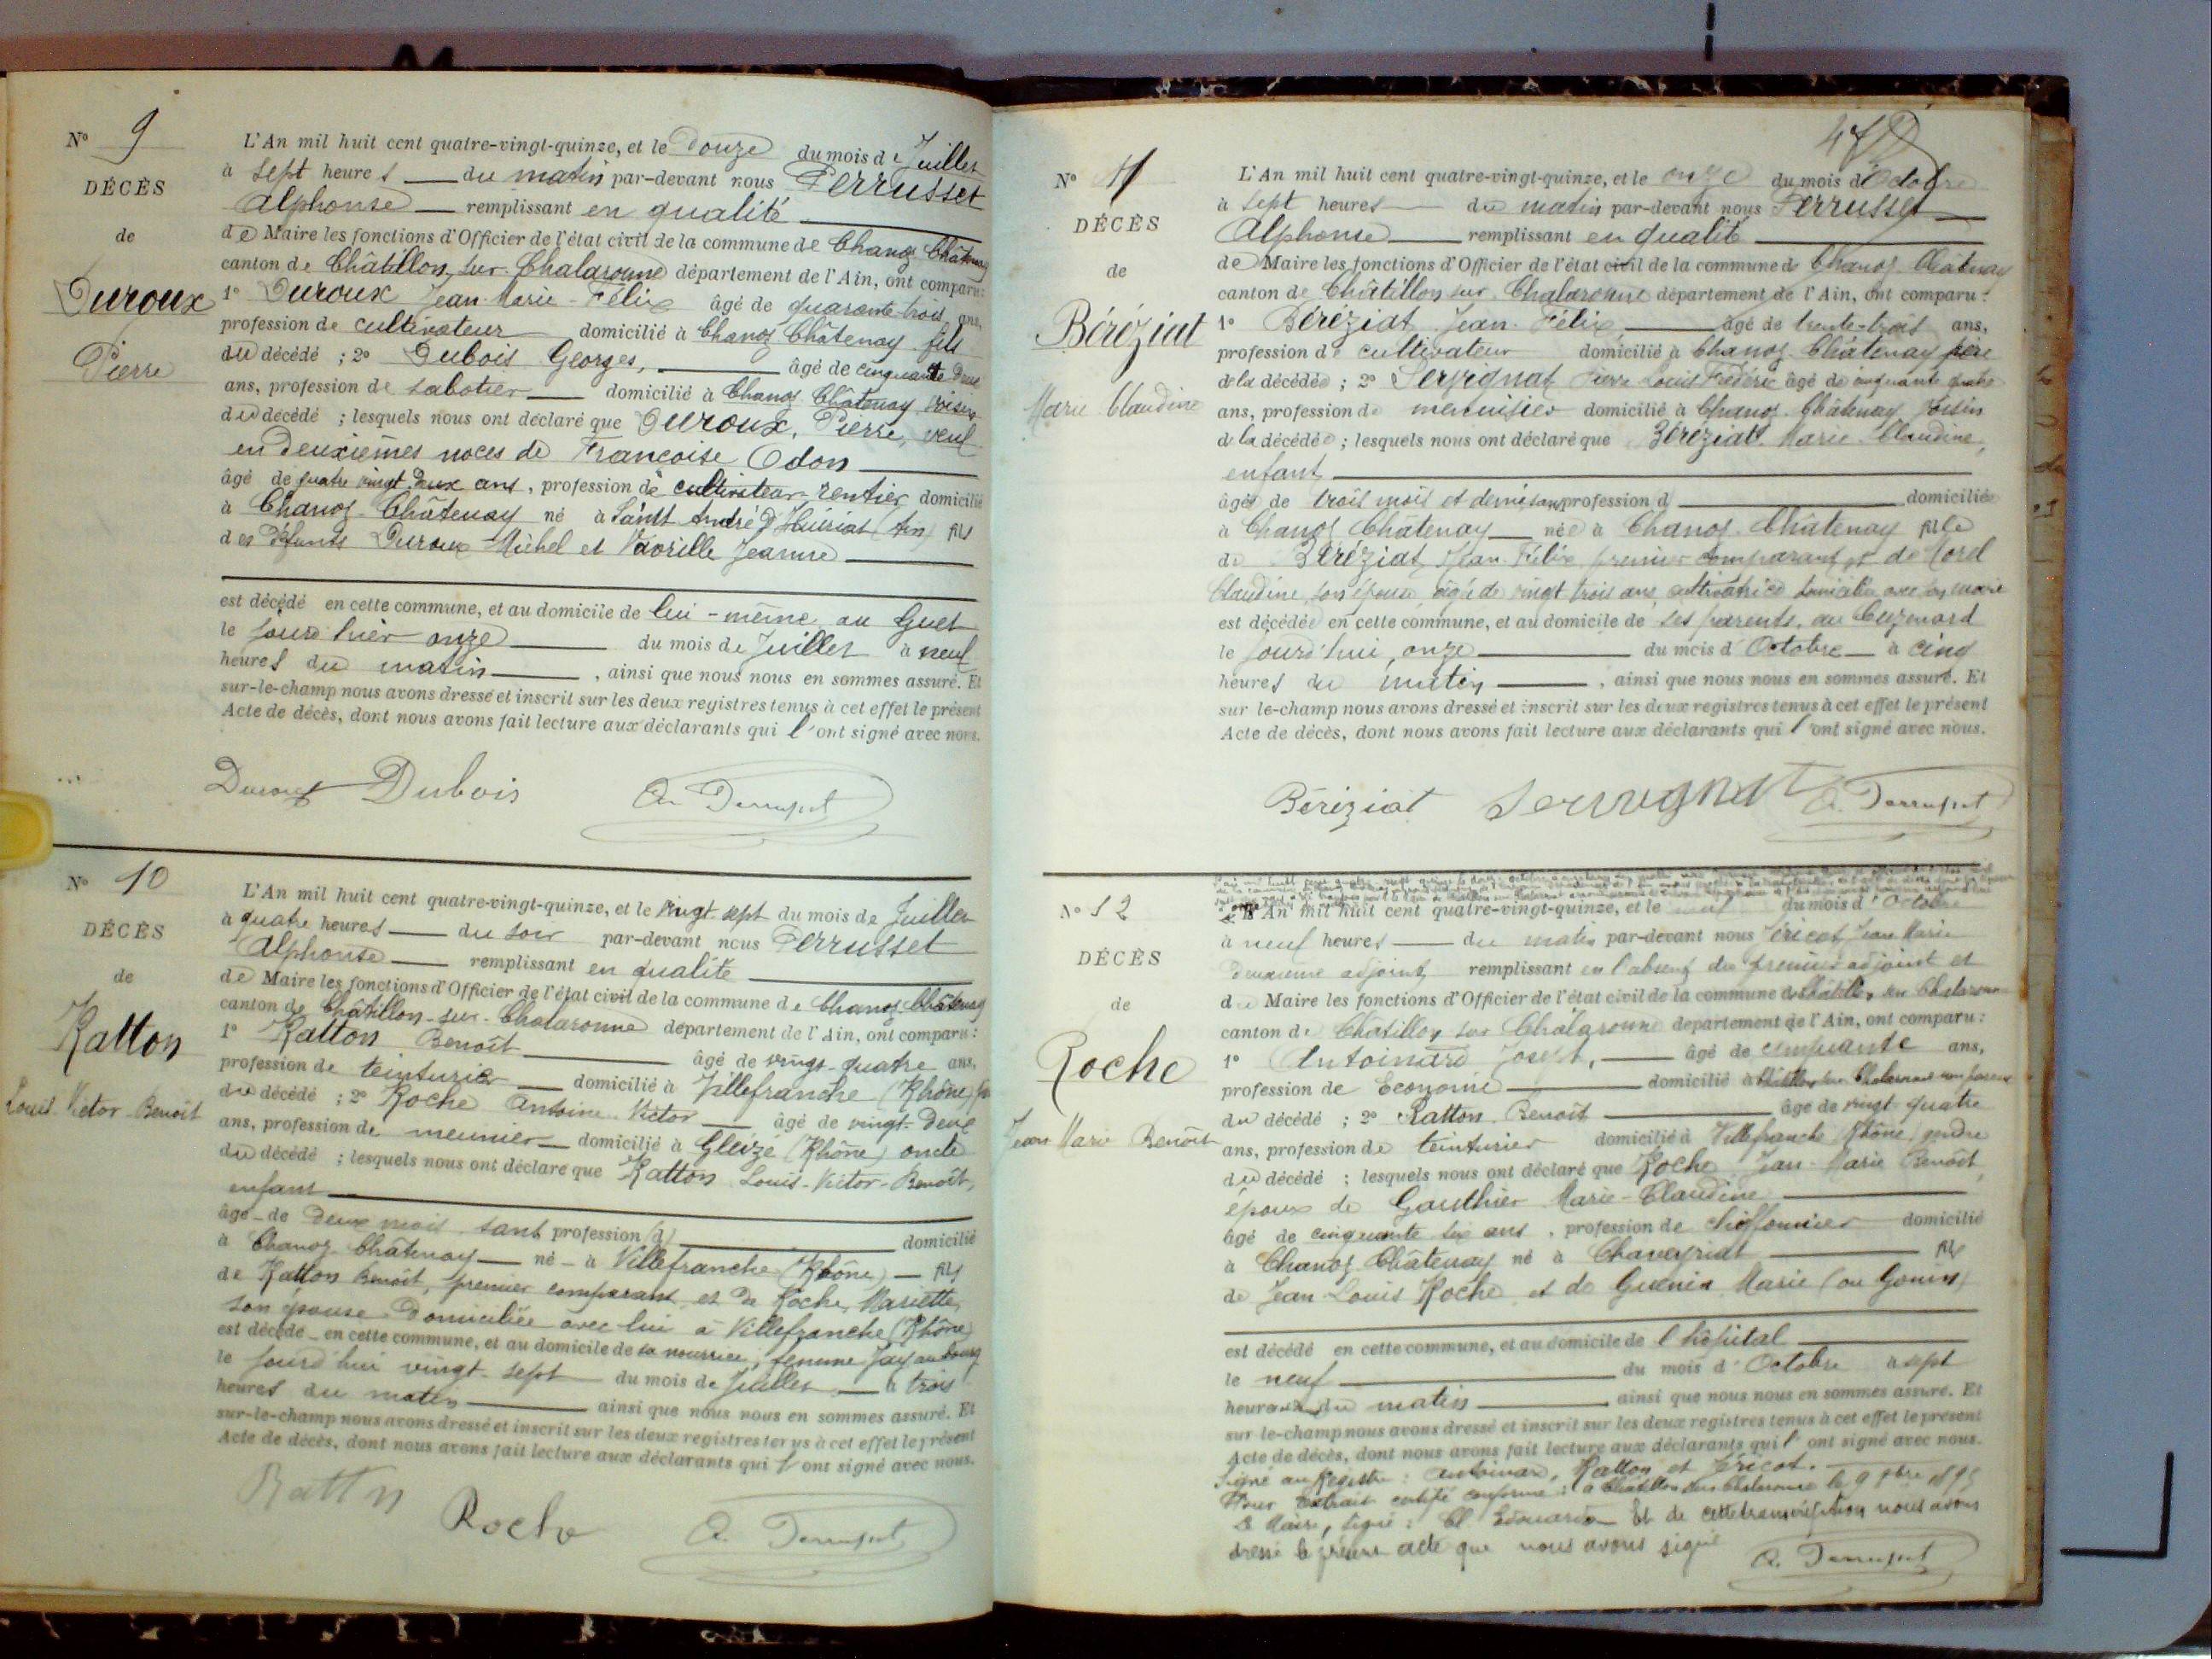 N° 9
DÉCÈS
de
Duroux
Pierre
L'An mil huit cent quatre-vingt-quinze, et le douze du mois de Juillet
à sept heures du matin par-devant nous Perrusset
Alphonse remplissant en qualité
de Maire les fonctions d'Officier de l'état civil de la commune de Chanoz Châtenay
canton de Châtillon sur Chalaronne département de l'Ain, ont comparu:
1° Duroux Jean-Marie-Félix âgé de quarante-trois ans,
profession de cultivateur domicilié à Chanoz Châtenay fils
du décédé ; 2° Dubois Georges, âgé de cinquante deux
ans, profession de sabotier domicilié à Chanoz Châtenay voisin
du décédé ; lesquels nous ont déclaré que Duroux, Pierre, veuf
en deuxièmes noces de Françoise Odon
âgé de quatre vingt deux ans, profession de cultivateur-rentier domicilié
à Chanoz-Châtenay né à Saint André d'Huiriat (Ain) fils
des défunts Duroux Michel et Vavrille Jeanne
est décédé en cette commune, et au domicile de lui-même au Guet
le jourd'hier onze du mois de Juillet à neuf
heures du matin, ainsi que nous nous en sommes assuré. Et
sur-le-champ nous avons dressé et inscrit sur les deux registres tenus à cet effet le présent
Acte de décès, dont nous avons fait lecture aux déclarants qui l'ont signé avec nous.
Duroux Dubois A. Perrusset
N° 10
DÉCÈS
de
Ratton
Louis Victor Benoît
L'An mil huit cent quatre-vingt-quinze, et le vingt sept du mois de Juillet
à quatre heures du soir par-devant nous Perrusset
Alphonse remplissant en qualité
de Maire les fonctions d'Officier de l'état civil de la commune de Chanoz Châtenay
canton de Châtillon-sur-Chalaronne département de l'Ain, ont comparu:
1° Ratton Benoît âgé de vingt-quatre ans,
profession de teinturier domicilié à Villefranche (Rhône)
du décédé ; 2° Roche Antoine Victor âgé de vingt-deux
ans, profession de meunier domicilié à Gleizé (Rhône) oncle
du décédé ; lesquels nous ont déclaré que Ratton Louis-Victor-Benoît,
enfant
âgé de deux mois sans profession d domicilié
à Chanoz Châtenay né à Villefranche (Rhône) fils
de Ratton Benoît, premier comparant et de Roche, Mariette,
son épouse domiciliée avec lui à Villefranche (Rhône)
est décédé en cette commune, et au domicile de sa nourrice, femme Jay au bourg
le jourd'hui vingt-sept du mois de Juillet à trois
heures du matin ainsi que nous nous en sommes assuré. Et
sur-le-champ nous avons dressé et inscrit sur les deux registres tenus à cet effet le présent
Acte de décès, dont nous avons fait lecture aux déclarants qui l'ont signé avec nous.
Ratton Roche A. Perrusset
N° 11
DÉCÈS
de
Béréziat
Marie Claudine
L'An mil huit cent quatre-vingt-quinze, et le onze du mois d'Octobre
à sept heures du matin par-devant nous Perrusset
Alphonse remplissant en qualité
de Maire les fonctions d'Officier de l'état civil de la commune de Chanoz Châtenay
canton de Châtillon sur Chalaronne département de l'Ain, ont comparu:
1° Béréziat Jean Félix âgé de trente-trois ans,
profession de cultivateur domicilié à Chanoz Châtenay père
de la décédée ; 2° Servignat Pierre Louis Frédéric âgé de cinquante quatre
ans, profession de menuisier domicilié à Chanoz Châtenay voisin
de la décédée ; lesquels nous ont déclaré que Béréziat Marie Claudine,
enfant
âgée de trois mois et demi sans profession d domiciliée
à Chanoz Châtenay née à Chanoz-Châtenay fille
de Béréziat Jean Félix premier comparant et de Morel
Claudine, son épouse, âgée de vingt trois ans, cultivatrice domiciliée avec son mari
est décédée en cette commune, et au domicile de ses parents, au
le jourd'hui, onze du mois d'Octobre à cinq
heures du matin, ainsi que nous nous en sommes assuré. Et
sur le-champ nous avons dressé et inscrit sur les deux registres tenus à cet effet le présent
Acte de décès, dont nous avons fait lecture aux déclarants qui l'ont signé avec nous.
Béréziat Servignat A. Perrusset
N° 12
DÉCÈS
de
Roche
Jean Marie Benoît
L'An mil huit cent quatre-vingt-quinze, et le neuf du mois d'Octobre
à neuf heures du matin par-devant nous Jéricot Jean Marie
deuxième adjoint remplissant en l'absence du premier adjoint et
du Maire les fonctions d'Officier de l'état civil de la commune de Châtillon sur Chalaronne
canton de Châtillon sur Chalaronne département de l'Ain, ont comparu:
1° Antoinard Joseph, âgé de cinquante ans,
profession de Econome domicilié à Châtillon sur Chalaronne non parent
du décédé ; 2° Ratton Benoît âgé de vingt quatre
ans, profession de teinturier domicilié à Villefranche Rhône gendre
du décédé ; lesquels nous ont déclaré que Roche Jean-Marie Benoît,
époux de Gauthier Marie-Claudine
âgé de cinquante six ans, profession de chiffonnier domicilié
à Chanoz-Châtenay né à Chaveyriat fils
de Jean Louis Roche et de Guenin Marie (ou Gonin)
est décédé en cette commune, et au domicile de l'hôpital
le neuf du mois d'Octobre à sept
heures du matin ainsi que nous nous en sommes assuré. Et
sur le-champ nous avons dressé et inscrit sur les deux registres tenus à cet effet le présent
Acte de décès, dont nous avons fait lecture aux déclarants qui l'ont signé avec nous.
Signé au Registre : Antoinard, Ratton et Jéricot.
Pour extrait certifié conforme : à Châtillon sur Chalaronne le 9 8bre 1895
Le Maire, signé : Et de cette transcription nous avons
dressé le présent acte que nous avons signé A. Perrusset